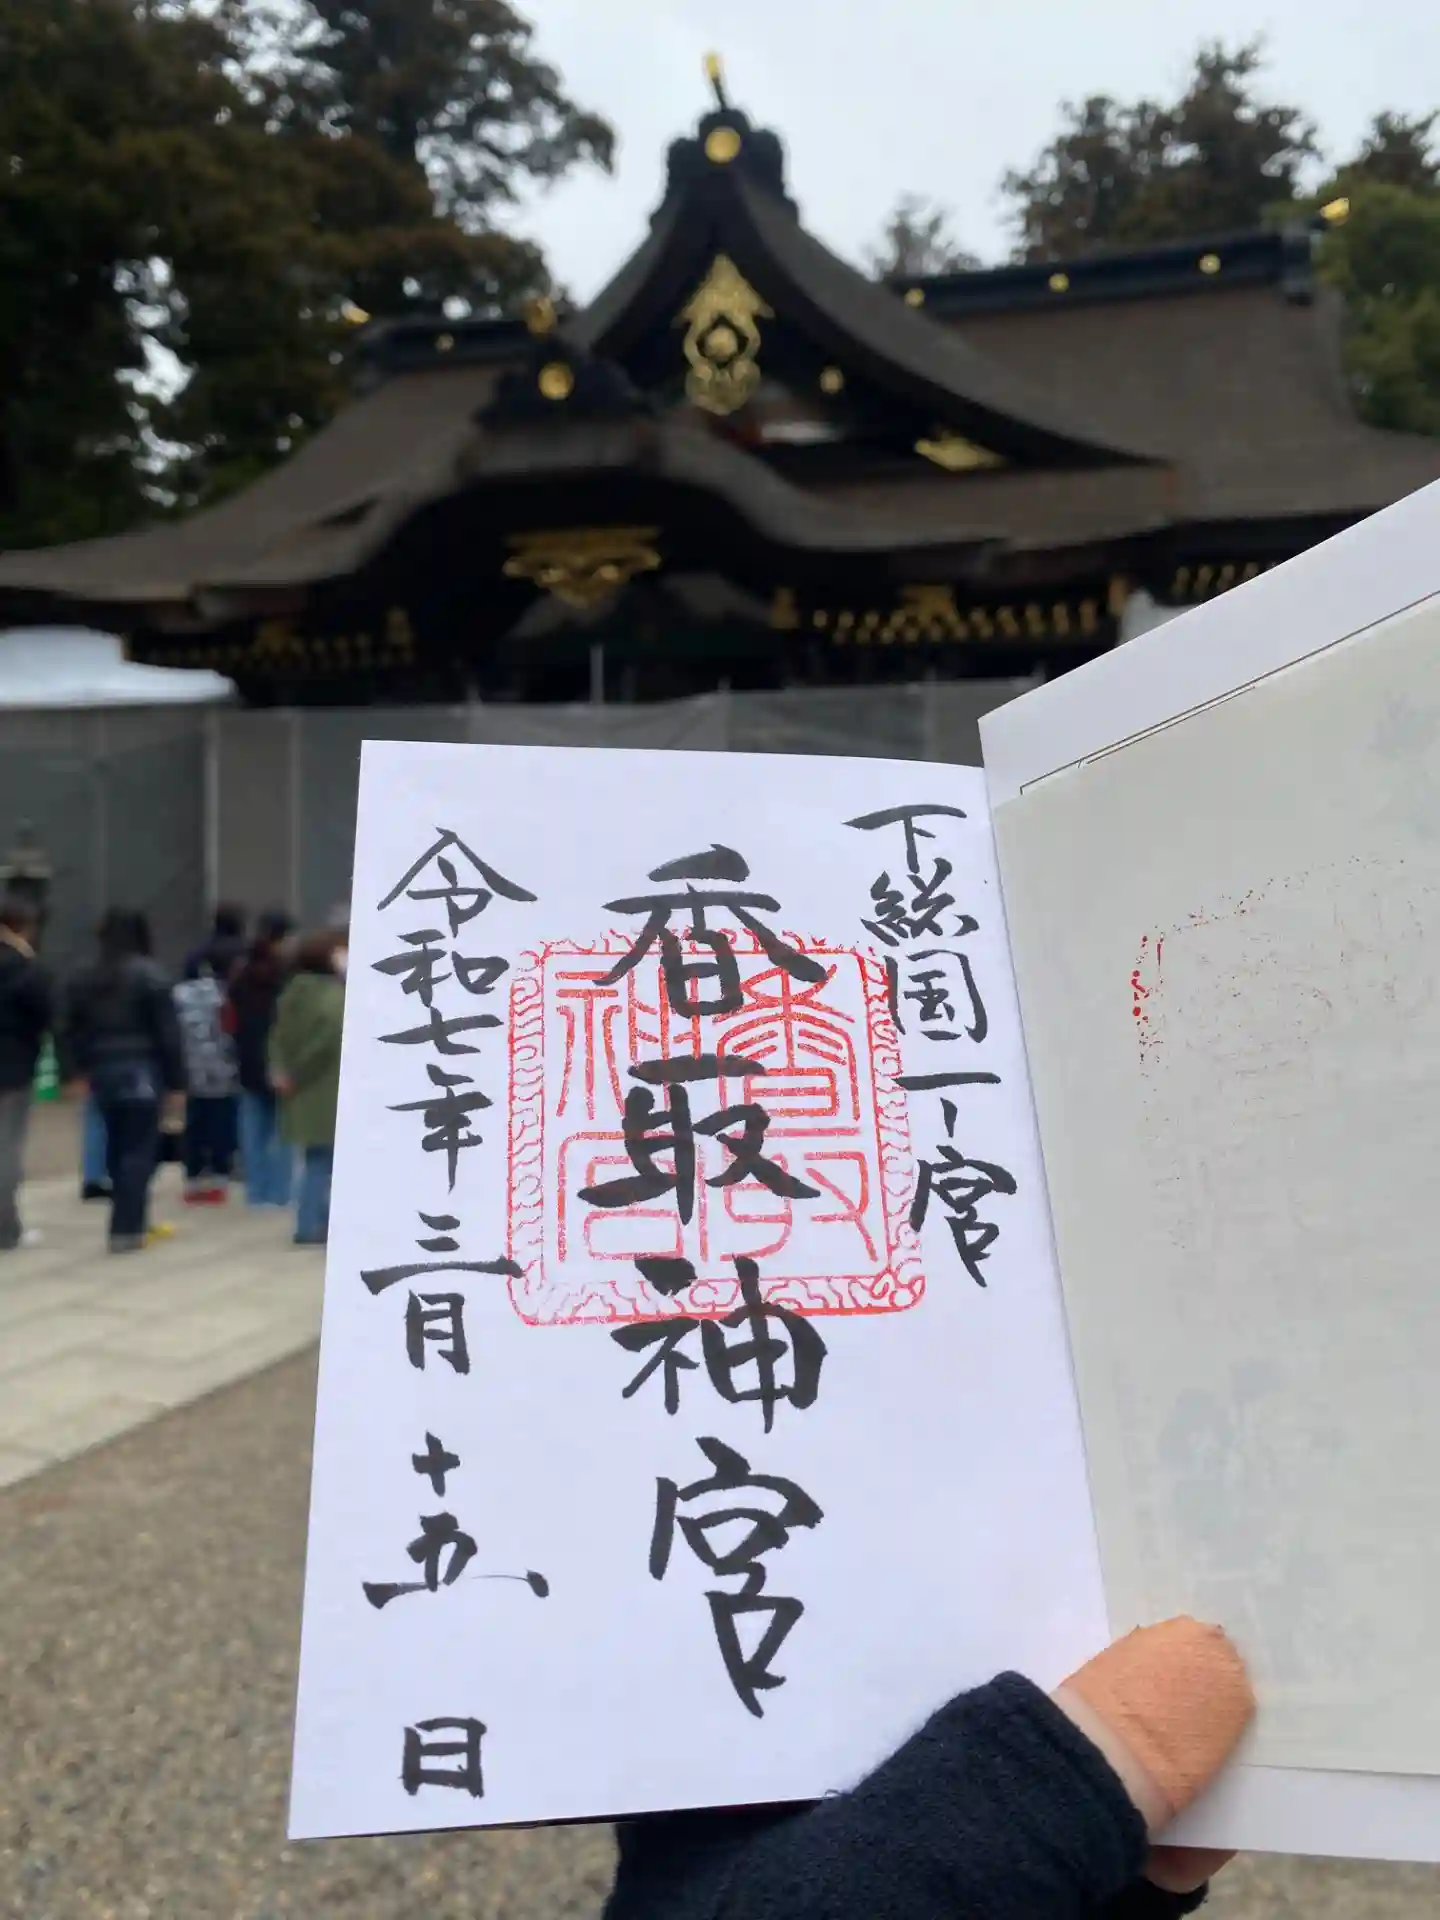 下総国一宮
香取神宮
香取神宮
令和七年三月十五日